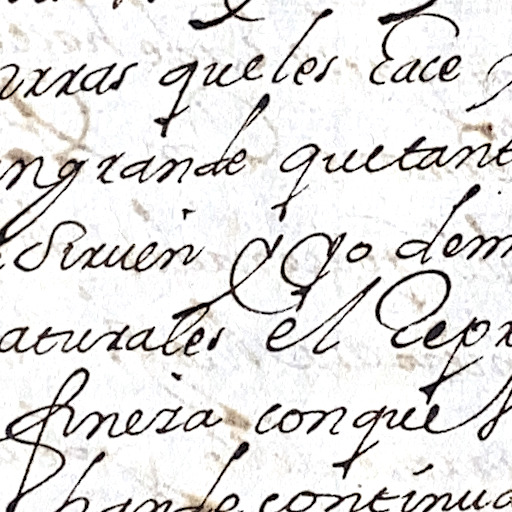 rras queles Hace
ngrande quetant
siruen y go dem
aturales el Repr
finesa conque
hande continua